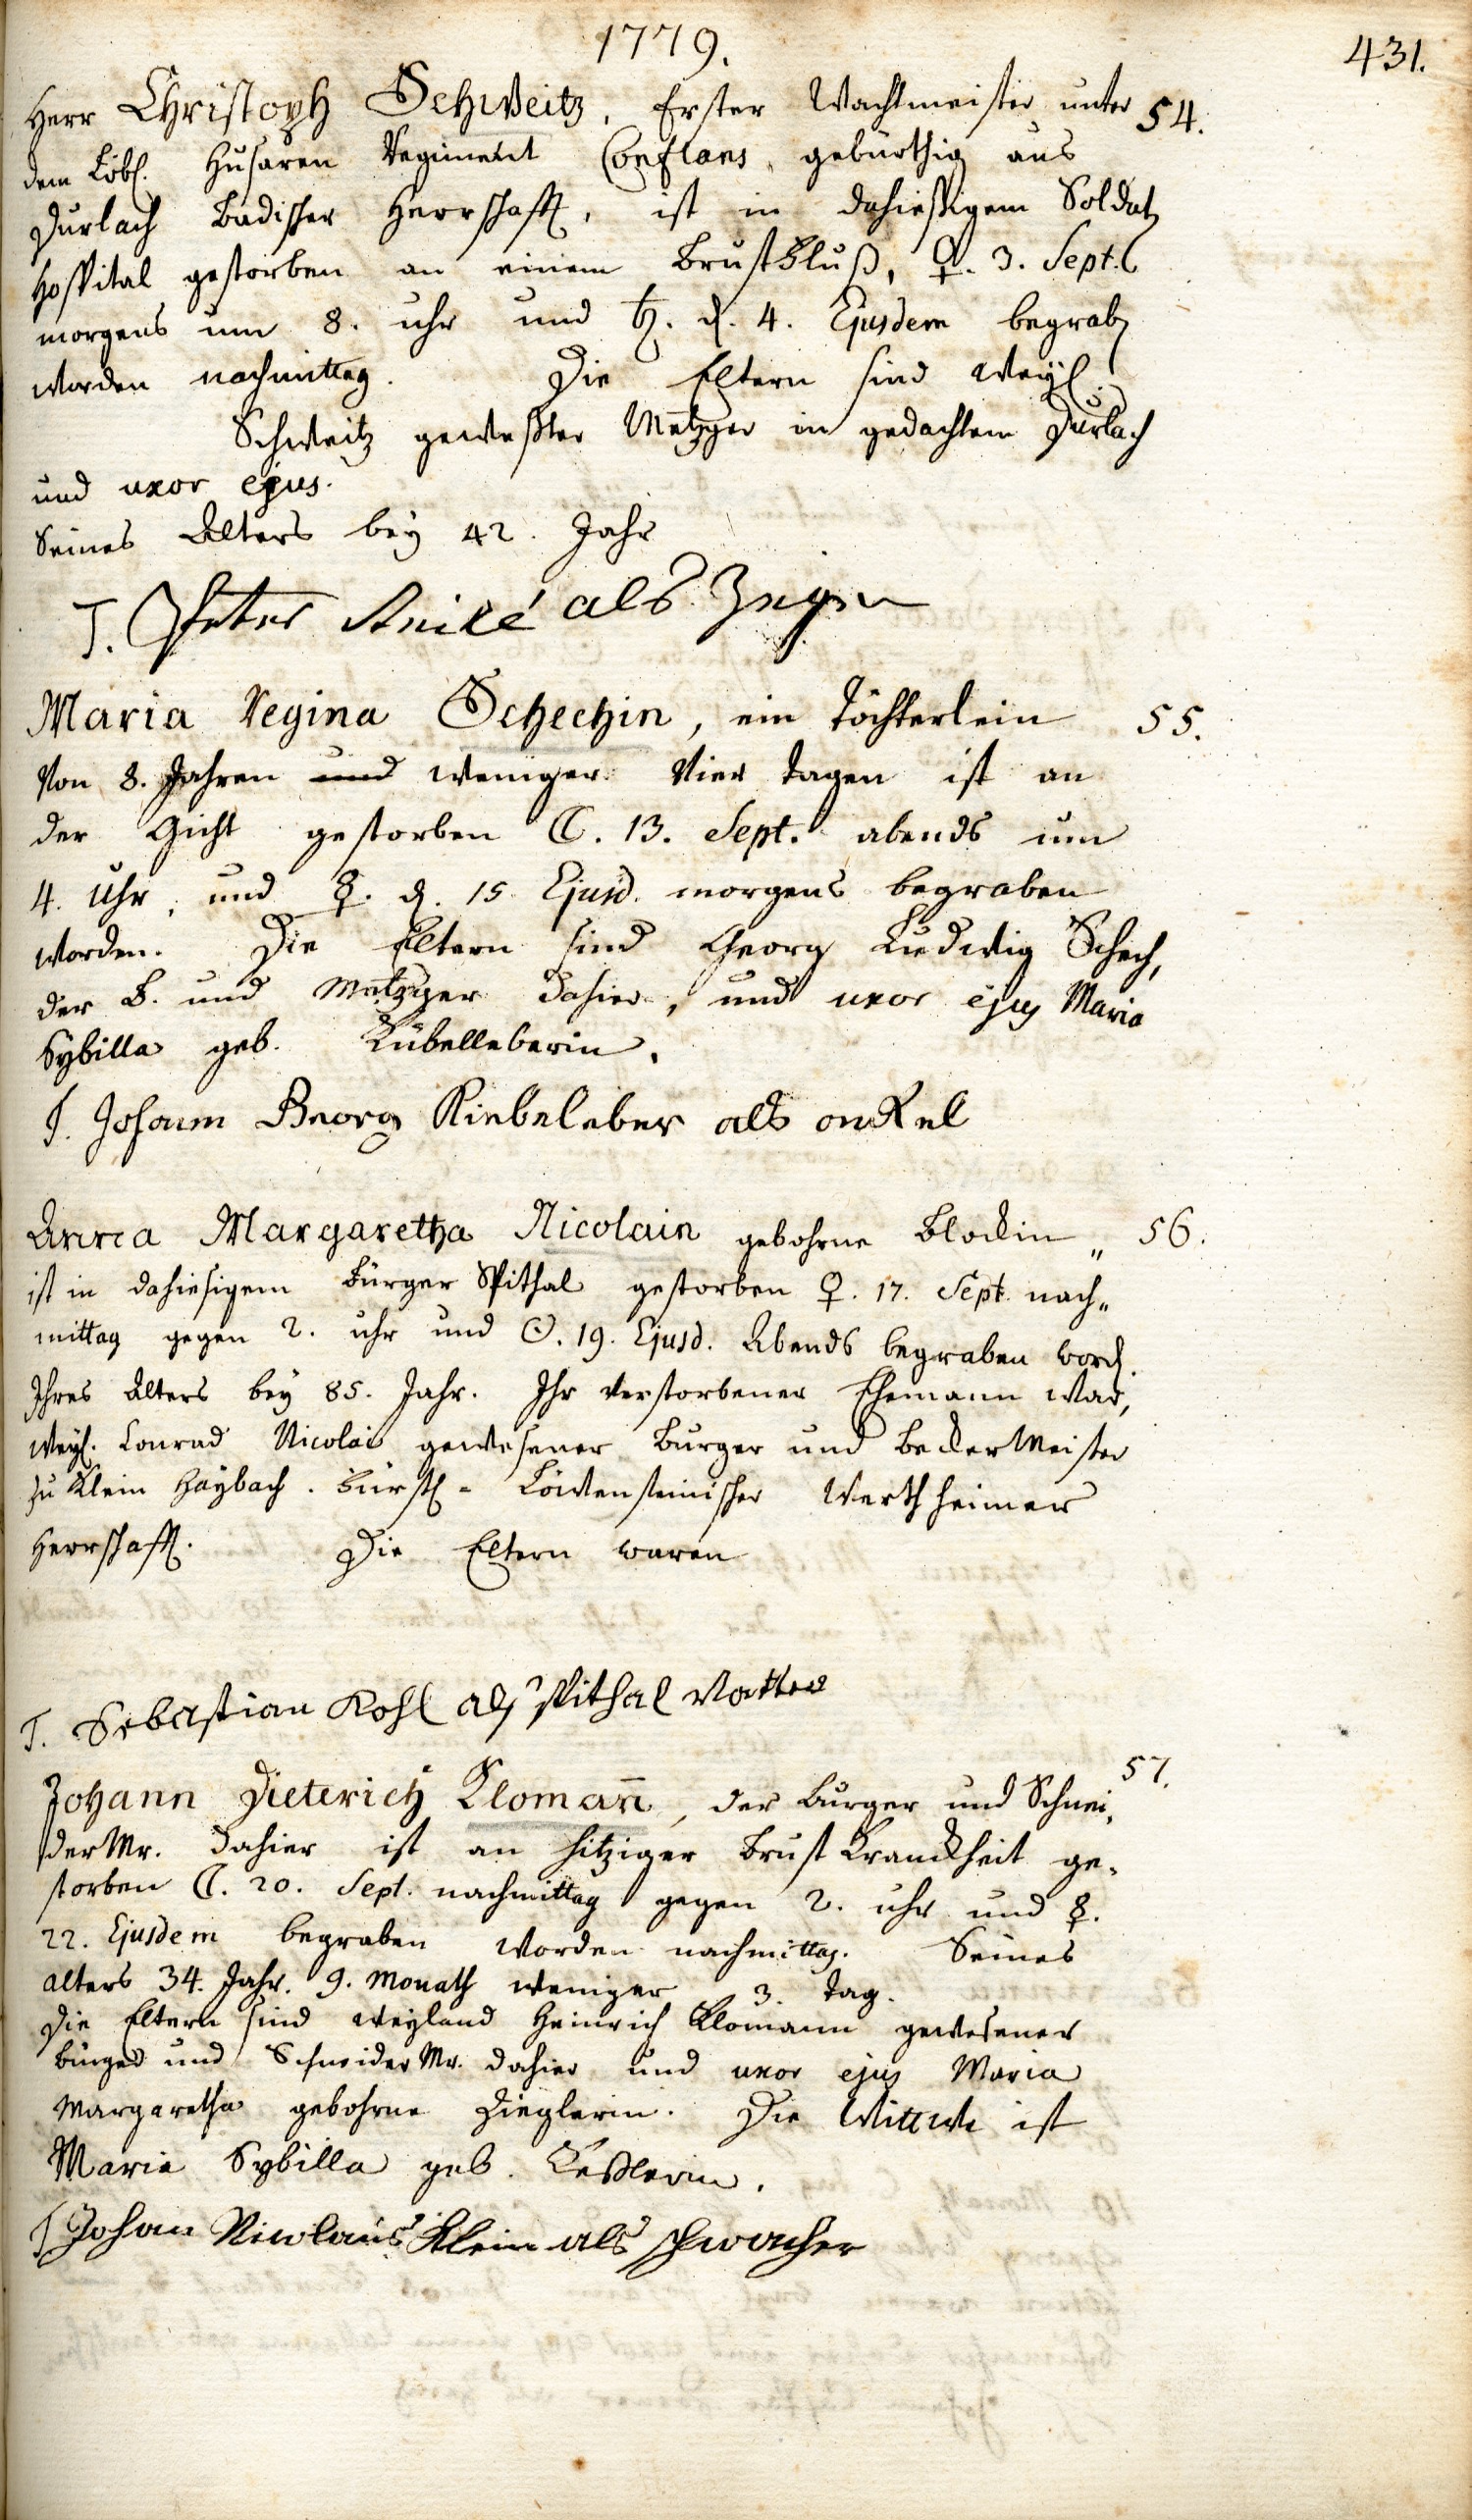 1779.
431.
Herr Christoph Schweitz, Erster Wachtmeister unter 54.
dem Löbl. Husaren Regiment Conflans, gebürthig aus
Durlach Badischer Herrschafft, ist in dahießigem Soldatn
Hospital gestorben an einem Brustfluß, ♀. 3. Sept.
morgens um 8. uhr und ♄. d. 4. Ejusdem begrabn
worden nachmittag. Die Eltern sind weyl.
Schweitz geweßter Metzger in gedachtem Durlach
und uxor ejus.
Seines Alters bey 42. Jahr
T. Peter als Zeigen
Maria Regina Schechin, ein Töchterlein 55.
von 8. Jahren und weniger vier tagen ist an
der Gicht gestorben ☾. 13. Sept. abends um
4. Uhr, und ☿. d. 15 Ejusd. morgens begraben
worden. Die Eltern sind Georg Ludwig Schech,
der B. und Metzger dahier, und uxor ejus Maria
Sybilla geb. Kübelleberin.
T. Johann Georg Kiebeleber als onkel
Anna Margaretha Nicolain gebohrne Blockin„ 56.
ist in dahiesigem Bürger Spithal gestorben ♀. 17. Sept. nach„
mittag gegen 2. uhr und ☉. 19. Ejusd. Abends begraben word.
Ihres Alters bey 85. Jahr. Ihr verstorbener Ehemann war,
weyl. Conrad Nicolai gewesener Burger und Becker Meister
zu Klein Haybach. Fürstl- Löwensteinischer Wertheimer
Herrschafft. Die Eltern waren
T. Sebastian Kohl als spithal vatter
Johann Dieterich Klomañ, der Burger und Schnei, 57.
der Mr. dahier ist an hitziger Brust Kranckheit ge„
storben ☾. 20. Sept. nachmittag gegen 2. uhr und ☿.
22. Ejusdem begraben worden nachmittag. Seines
alters 34. Jahr. 9. Monath weniger 3. tag.
Die Eltern sind weyland Heinrich Klomann gewesener
Bürger und Schneider Mr. dahier und uxor ejus Maria
Margaretha gebohrne Zieglerin. Die Wittwe ist
Maria Sybilla geb. Keßlerin.
T Johan Nicolaus Klein als schwacher